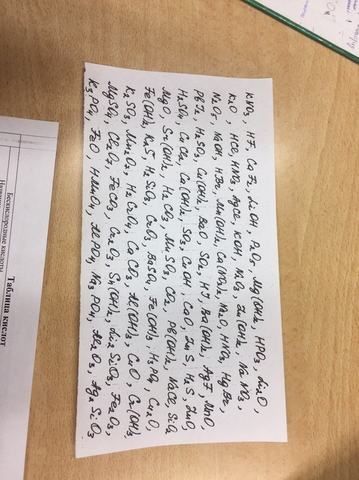 KNO₃, HF, CaF₂, LiOH, P₂O₅, Mg(OH)₂, HPO₃, Li₂O,
K₂O, HCl, HNO₃, AgCl, KOH, N₂O₃, Zn(OH)₂, NaNO₃,
N₂O₅, NaOH, HBr, Mn(OH)₂, Ca(NO₃)₂, Na₂O, HNO₂, HgBr₂
PbI₂, H₂SO₃, Cu(OH)₂, BaO, SO₂, HI, Ba(OH)₂, AgF, MnO
H₂SO₄, CaCl₂, Ca(OH)₂, SO₃, CsOH, CaO, ZnS, H₂S, ZnO
MgO, Sr(OH)₂, H₂CO₃, MnSO₄, CO₂, Pb(OH)₂, NaCl, SiO₂
Fe(OH)₂, K₂S, H₂SiO₃, CrO₃, BaSO₄, Fe(OH)₃, H₃PO₄, Cu₂O
K₂SO₄, Mn₂O₇, H₂CrO₄, CaCO₃, Al(OH)₃, CuO, Cr(OH)₃
MgSO₄, Cl₂O₇, FeCO₃, Cr₂O₃, Sn(OH)₂, Li₂SiO₃, Fe₂O₃,
K₃PO₄, FeO, HMnO₄, AlPO₄, Na₃PO₄, Al₂O₃, Ag₂SiO₃
Таблица кислот
Бескислородные кислоты